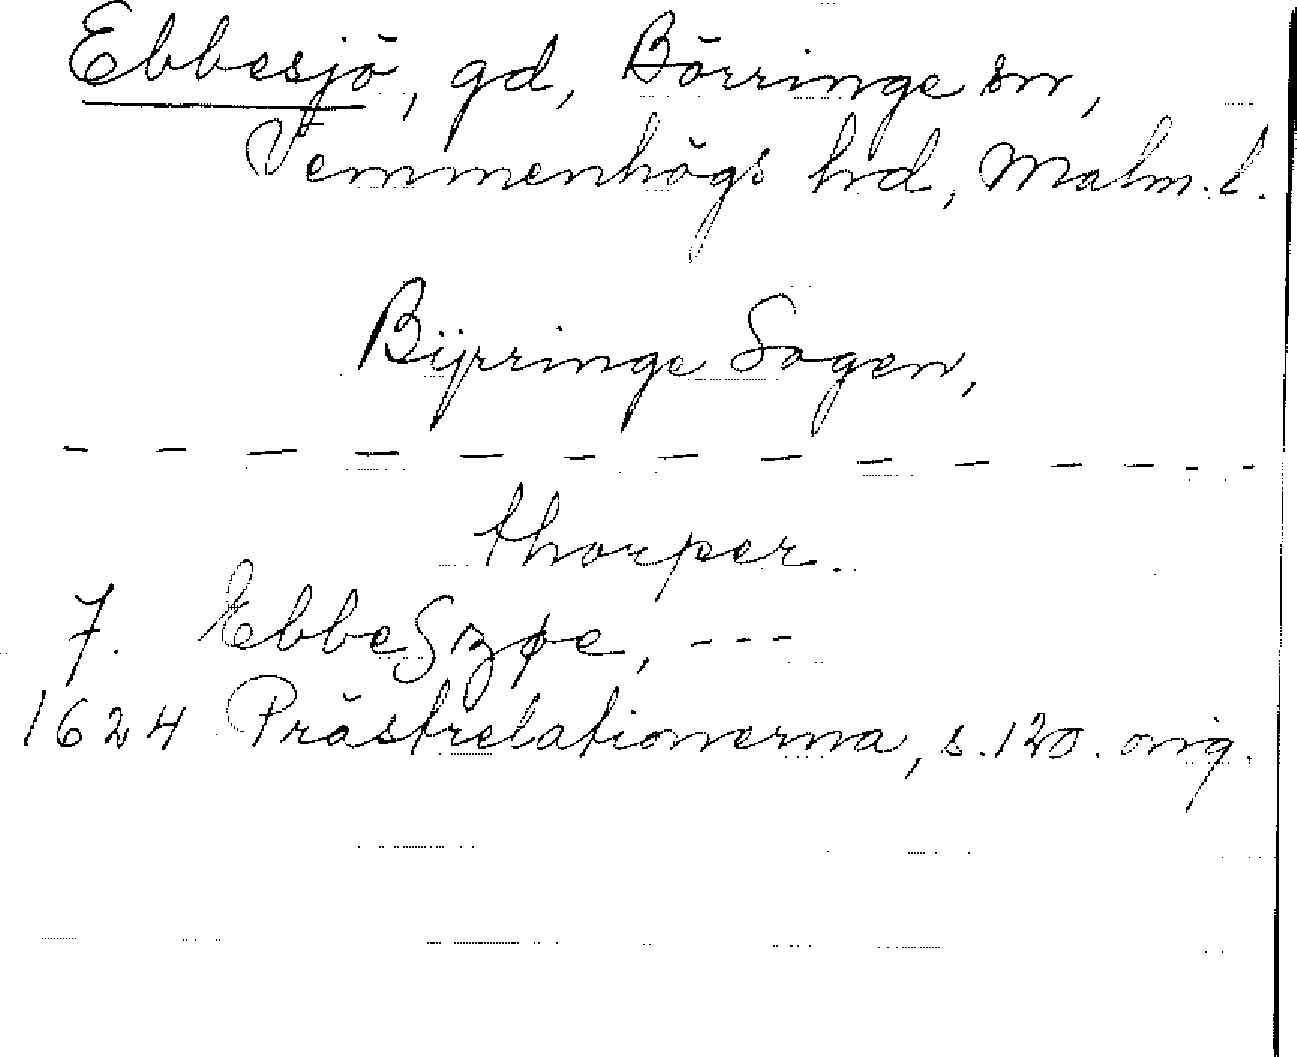 Ebbesjö, gd, Börringe sn,
Vemmenhögs hd, Malm. l.
Bijrringe Sogen,
— — — — — — — — — — — — — —
thorper.
7. EbbeSzøe, ---
1624 Prästrelationerna, s. 120. orig.